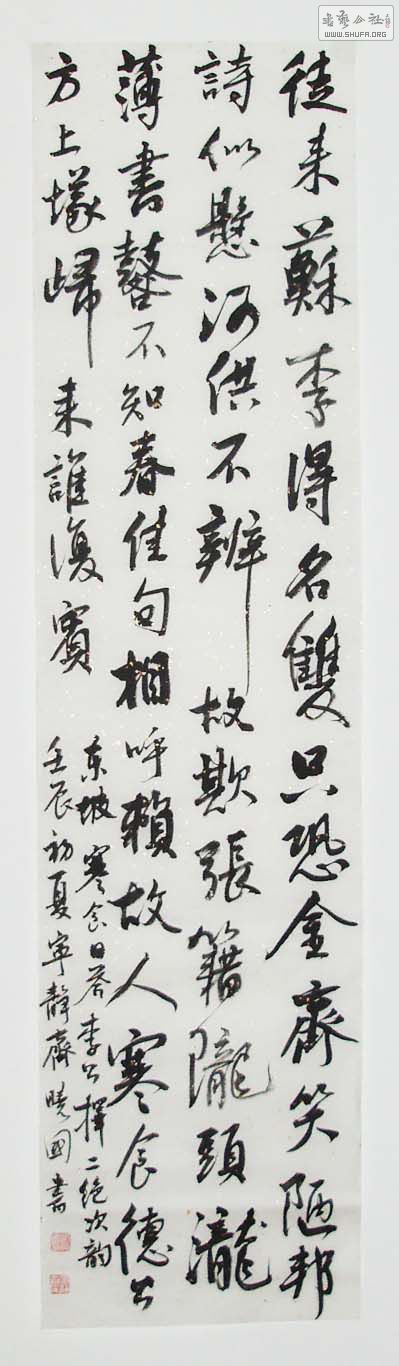 書藝公社
WWW.SHUFA.ORG
從来蘇李得名雙只恐全齊笑陋邦
詩似懸河供不辨故欺張籍隴頭瀧
薄書鼛不知春佳句相呼賴故人寒食德公
方上塜歸来誰復賓
东坡寒食日荅李公擇二絶次韵
壬辰初夏寧靜齋曉國書